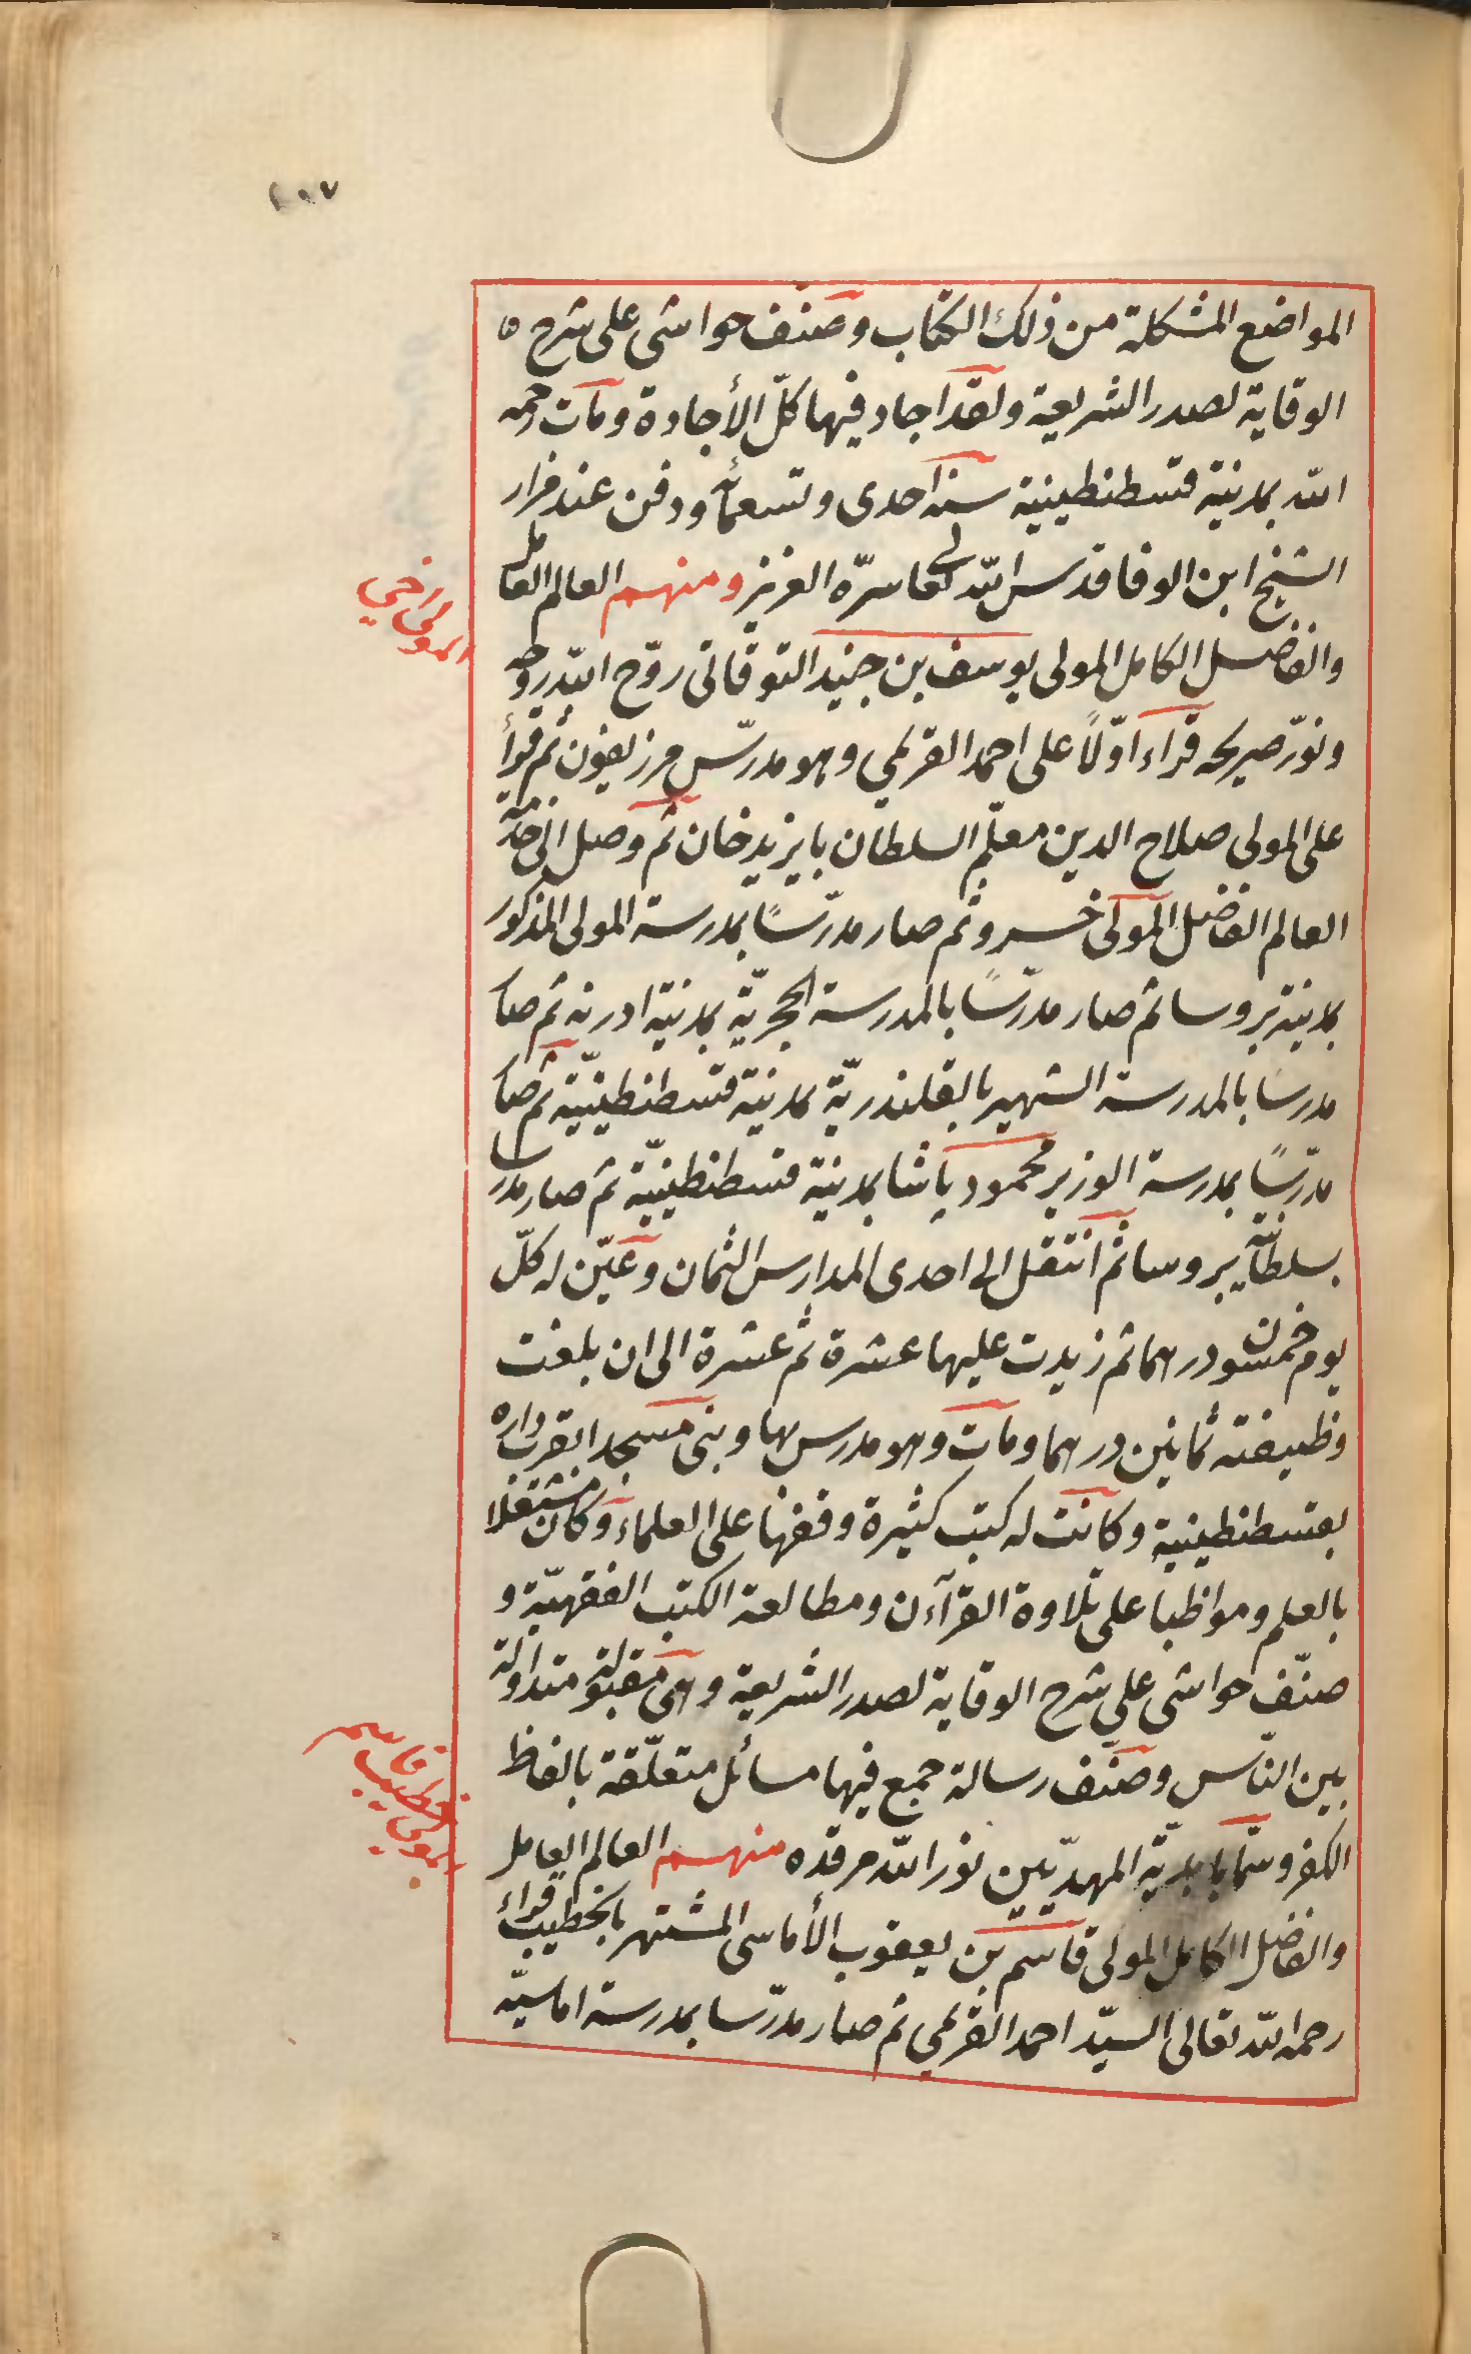 ١٠٧
المواضع المشكلة من ذلك الكتاب وصنف حواشى على شرح ه
الوقاية لصدر الشريعة ولقد اجاد فيها كلّ الأجادة ومات رحمه
الله بمدينة قسطنطينية سنة احدى وتسعمائة ودفن عند مزار
الشيخ ابن الوفا قدس الله تعالى سرّه العزيز ومنهم العالم العامل
والفاضل الكامل المولى يوسف بن جنيد التوقاتى روّح الله روحه
ونوّر ضريحه قراء اوّلاً على احمد القريمي وهو مدرّس مرزيفون ثم قرأ
على المولى صلاح الدين معلّم السلطان بايزيد خان ثم وصل الى خدمة
العالم الفاضل المولى خسرو ثم صار مدرّسًا بمدرسة المولى المذكور
بمدينة بروسا ثم صار مدرّسًا بالمدرسة الحجريّة بمدينة ادرنه ثم صار
مدرسا بالمدرسة الشهير بالقلندريّة بمدينة قسطنطينيّة ثم صار
مدرّسًا بمدرسة الوزير محمود پاشا بمدينة قسطنطينيّة ثم صار مدرسا
بسلطانية بروسا ثم انتقل الى احدى المدارس الثمان وعيّن له كلّ
يوم خمسون درهما ثم زيدت عليها عشرة ثم عشرة الى ان بلغت
وظيفته ثمانين درهما ومات وهو مدرس بها وبنى مسجدا بقرب داره
بقسطنطينية وكانت له كتب كثيرة وقفها على العلماء وكان مشتغلا
بالعلم ومواظبا على تلاوة القرآن ومطالعة الكتب الفقهيّة و
صنّف حواشى على شرح الوقاية لصدر الشريعة وهى مقبولة متداولة
بين النّاس وصنّف رسالة جمع فيها مسائل متعلّقة بالفاظ
الكفر وسمّاها بهدية المهديّين نور الله مرقده منهم العالم العامل
والفاضل الكامل المولى قاسم بن يعقوب الأماسى المشتهر بالخطيب قراء
رحمه الله تعالى السيّد احمد القريمي ثم صار مدرّسا بمدرسة اماسيّه
المولى اخي
المولى خطيب قاسم